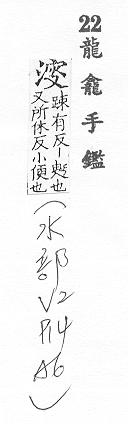 22龍龕手鑑
溲
疎有反丨麪也
又所休反小便也
(水部V2 P14 A6)